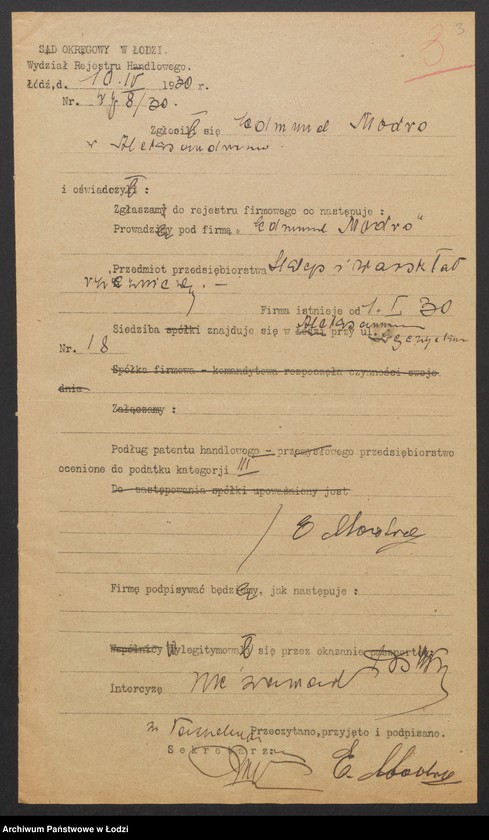 3
3
SĄD OKRĘGOWY W ŁODZI.
Wydział Rejestru Handlowego.
Łódź, d. 10.IV 1930 r.
Nr. 8/30.
Zgłosił się Edmund Modro
w Aleksandrowie.
i oświadczył :
Zgłaszam do rejestru firmowego co następuje :
Prowadzę pod firmą „Edmund Modro"
Przedmiot przedsiębiorstwa Sklep i warsztat
rzeźniczy. —
Firma istnieje od 1. I 30
Siedziba spółki znajduje się w Łodzi przy ul.
Nr. 18
Spółka firmowa - komandytowa rozpoczęła czynności swoje
dnia
Załączamy :
Podług patentu handlowego - przemysłowego przedsiębiorstwo
ocenione do podatku kategorji III
Do zastępowania spółki upoważniony jest
E Modro
Firmę podpisywać będę, jak następuje :
Wspólnicy Wylegitymował się przez okazanie paszportów
Intercyzę nie zawarł
Przeczytano, przyjęto i podpisano.
Sekretarz:
E. Modro
Archiwum Państwowe w Łodzi